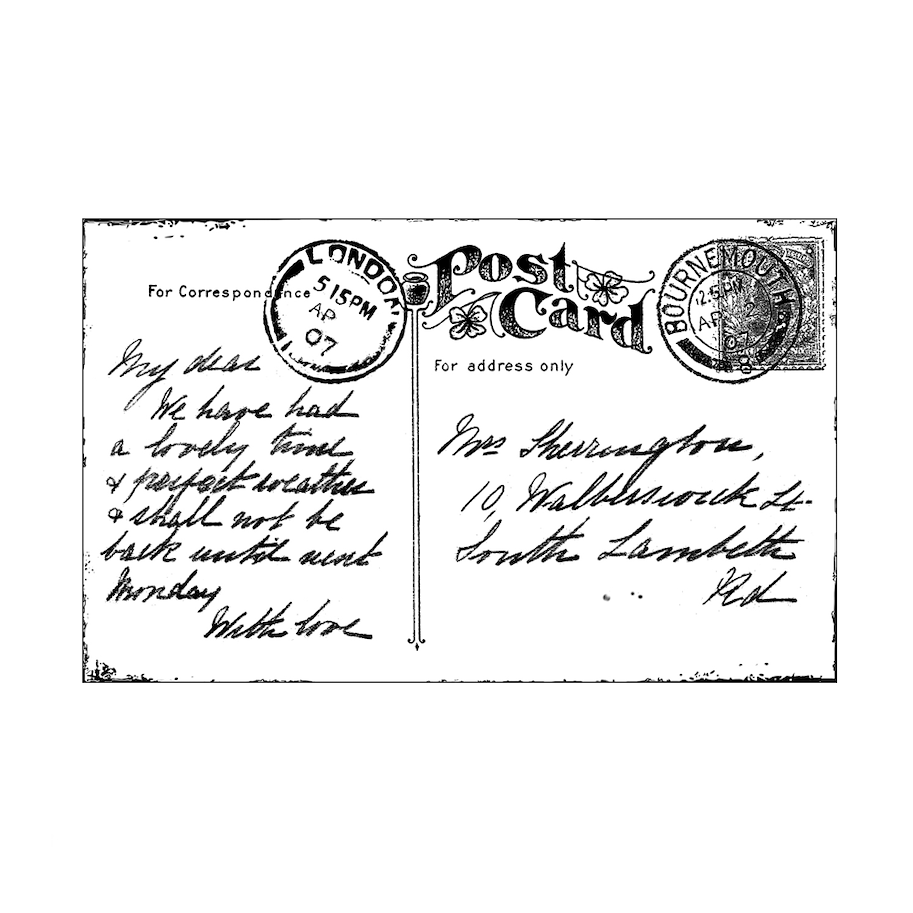 Post
Card
For Correspondence
LONDON
5 15PM
AP
07
BOURNEMOUTH
2.5 PM
AP 2
07
8
For address only
My dear
We have had
a lovely time
& perfect weather
& shall not be
back until next
Monday
With love
Mrs Sherrington,
10, Walberswick St.
South Lambeth
Rd